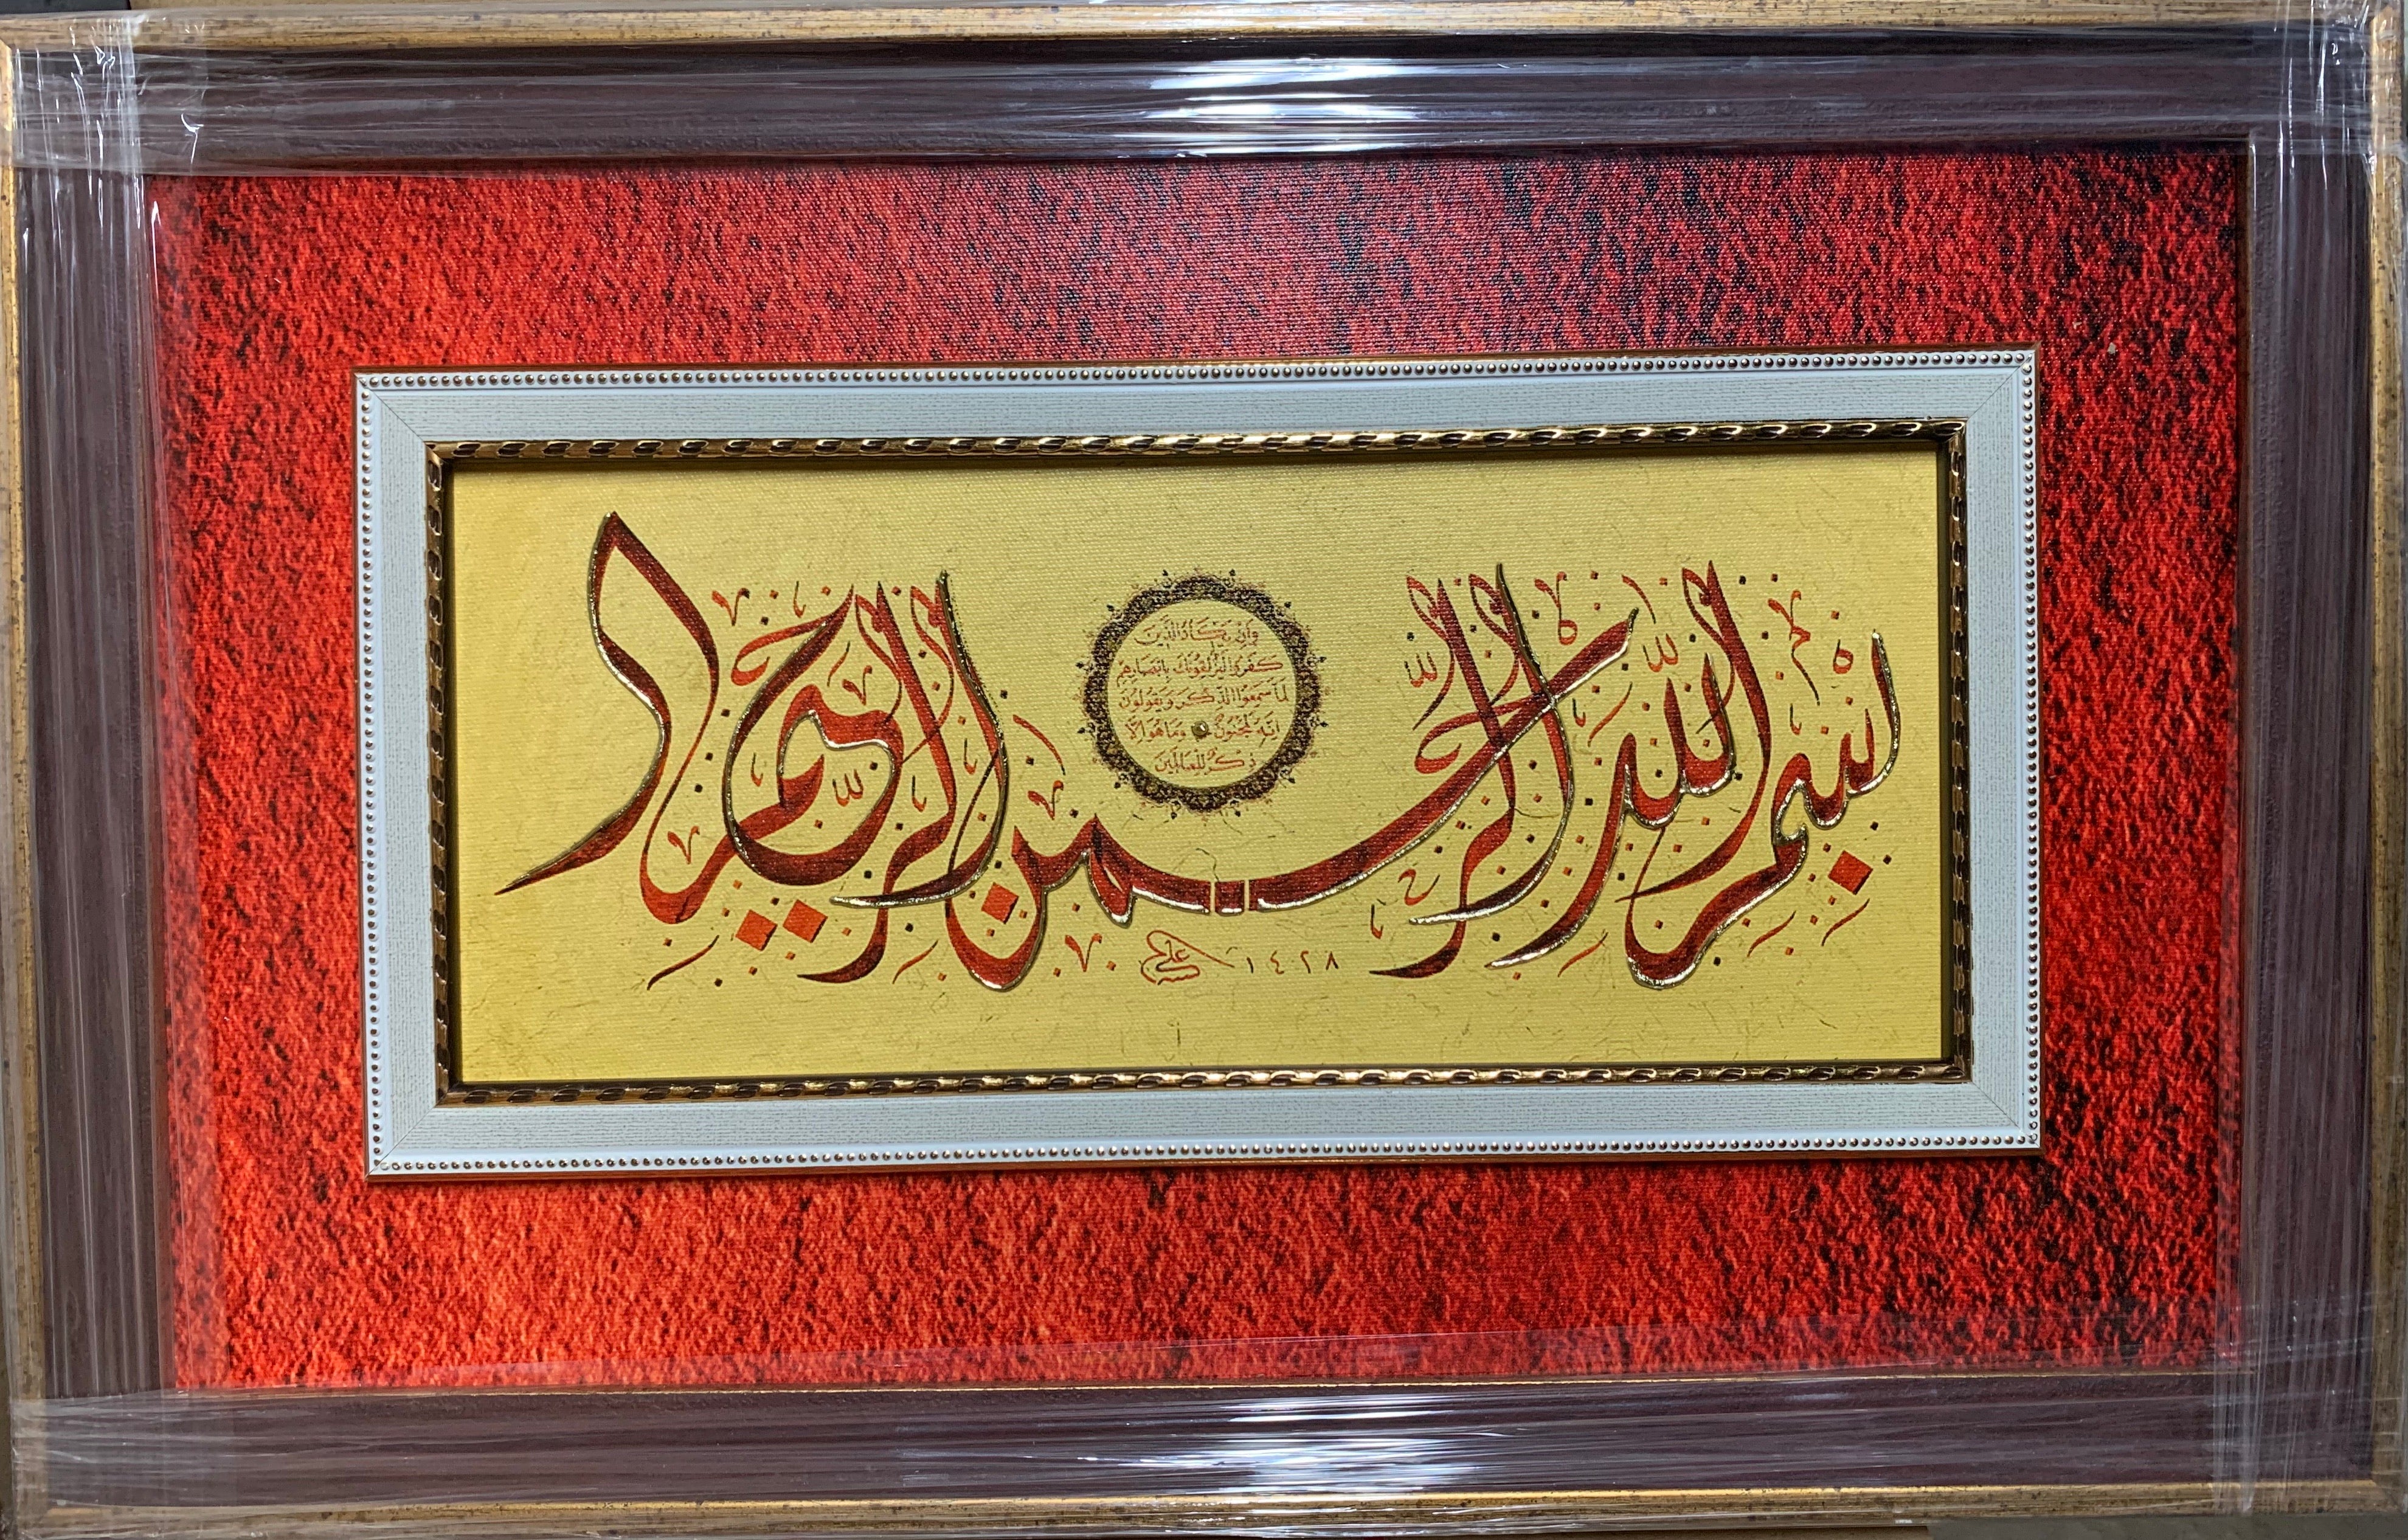 بسم الله الرحمن الرحيم
وَإِنْ يَكَادُ الَّذِينَ
كَفَرُوا لَيُزْلِقُونَكَ بِأَبْصَارِهِمْ
لَمَّا سَمِعُوا الذِّكْرَ وَيَقُولُونَ
إِنَّهُ لَمَجْنُونٌ وَمَا هُوَ إِلَّا
ذِكْرٌ لِلْعَالَمِينَ
١٤٢٨